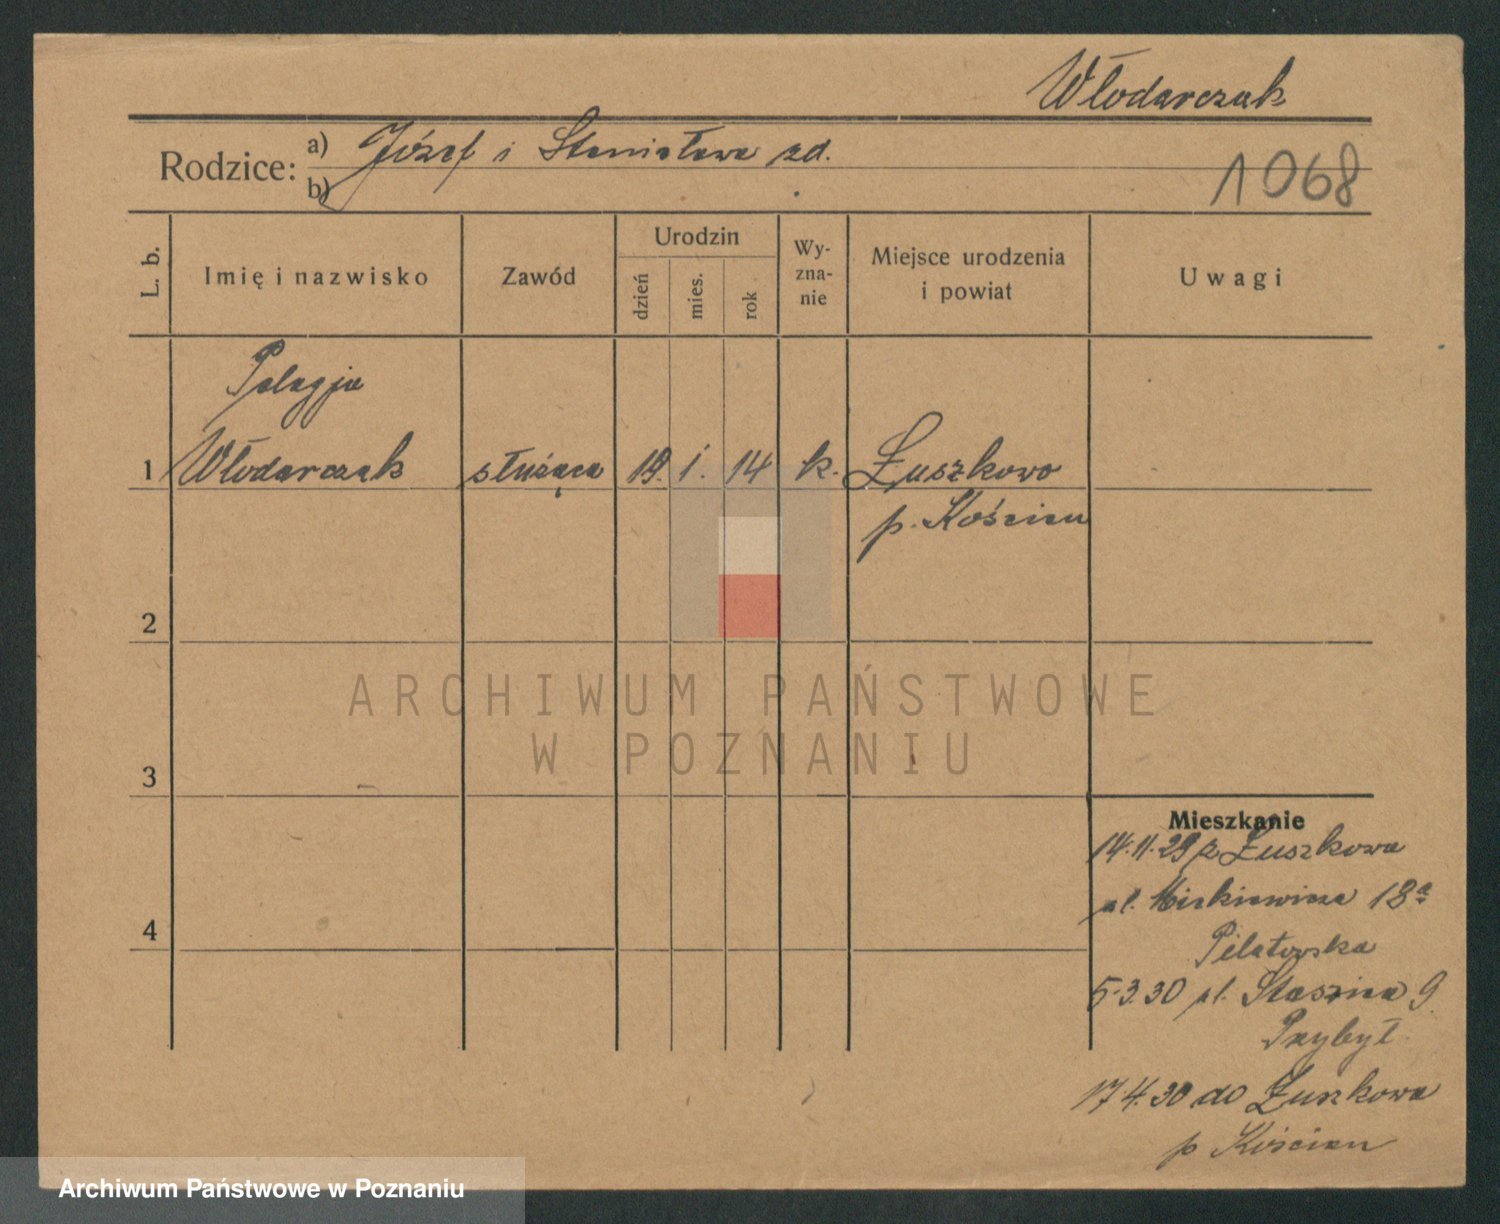 Włodarczak
Rodzice: a) Józef i Stanisława zd.
b)
1068
L. b.
Imię i nazwisko
Zawód
Urodzin
dzień
mies.
rok
Wy-
zna-
nie
Miejsce urodzenia
i powiat
Uwagi
Pelagja
1 Włodarczak służąca 19. 1. 14 k. Łuszkowo
p. Kościan
2
3
4
Mieszkanie
14.11.29 z Łuszkowa
pl. Mickiewicza 18a
Pilatowska
5.3.30 pl. Staszica 9
Przybył
17.4.30 do Łuszkowa
p Kościan
ARCHIWUM PAŃSTWOWE
W POZNANIU
Archiwum Państwowe w Poznaniu